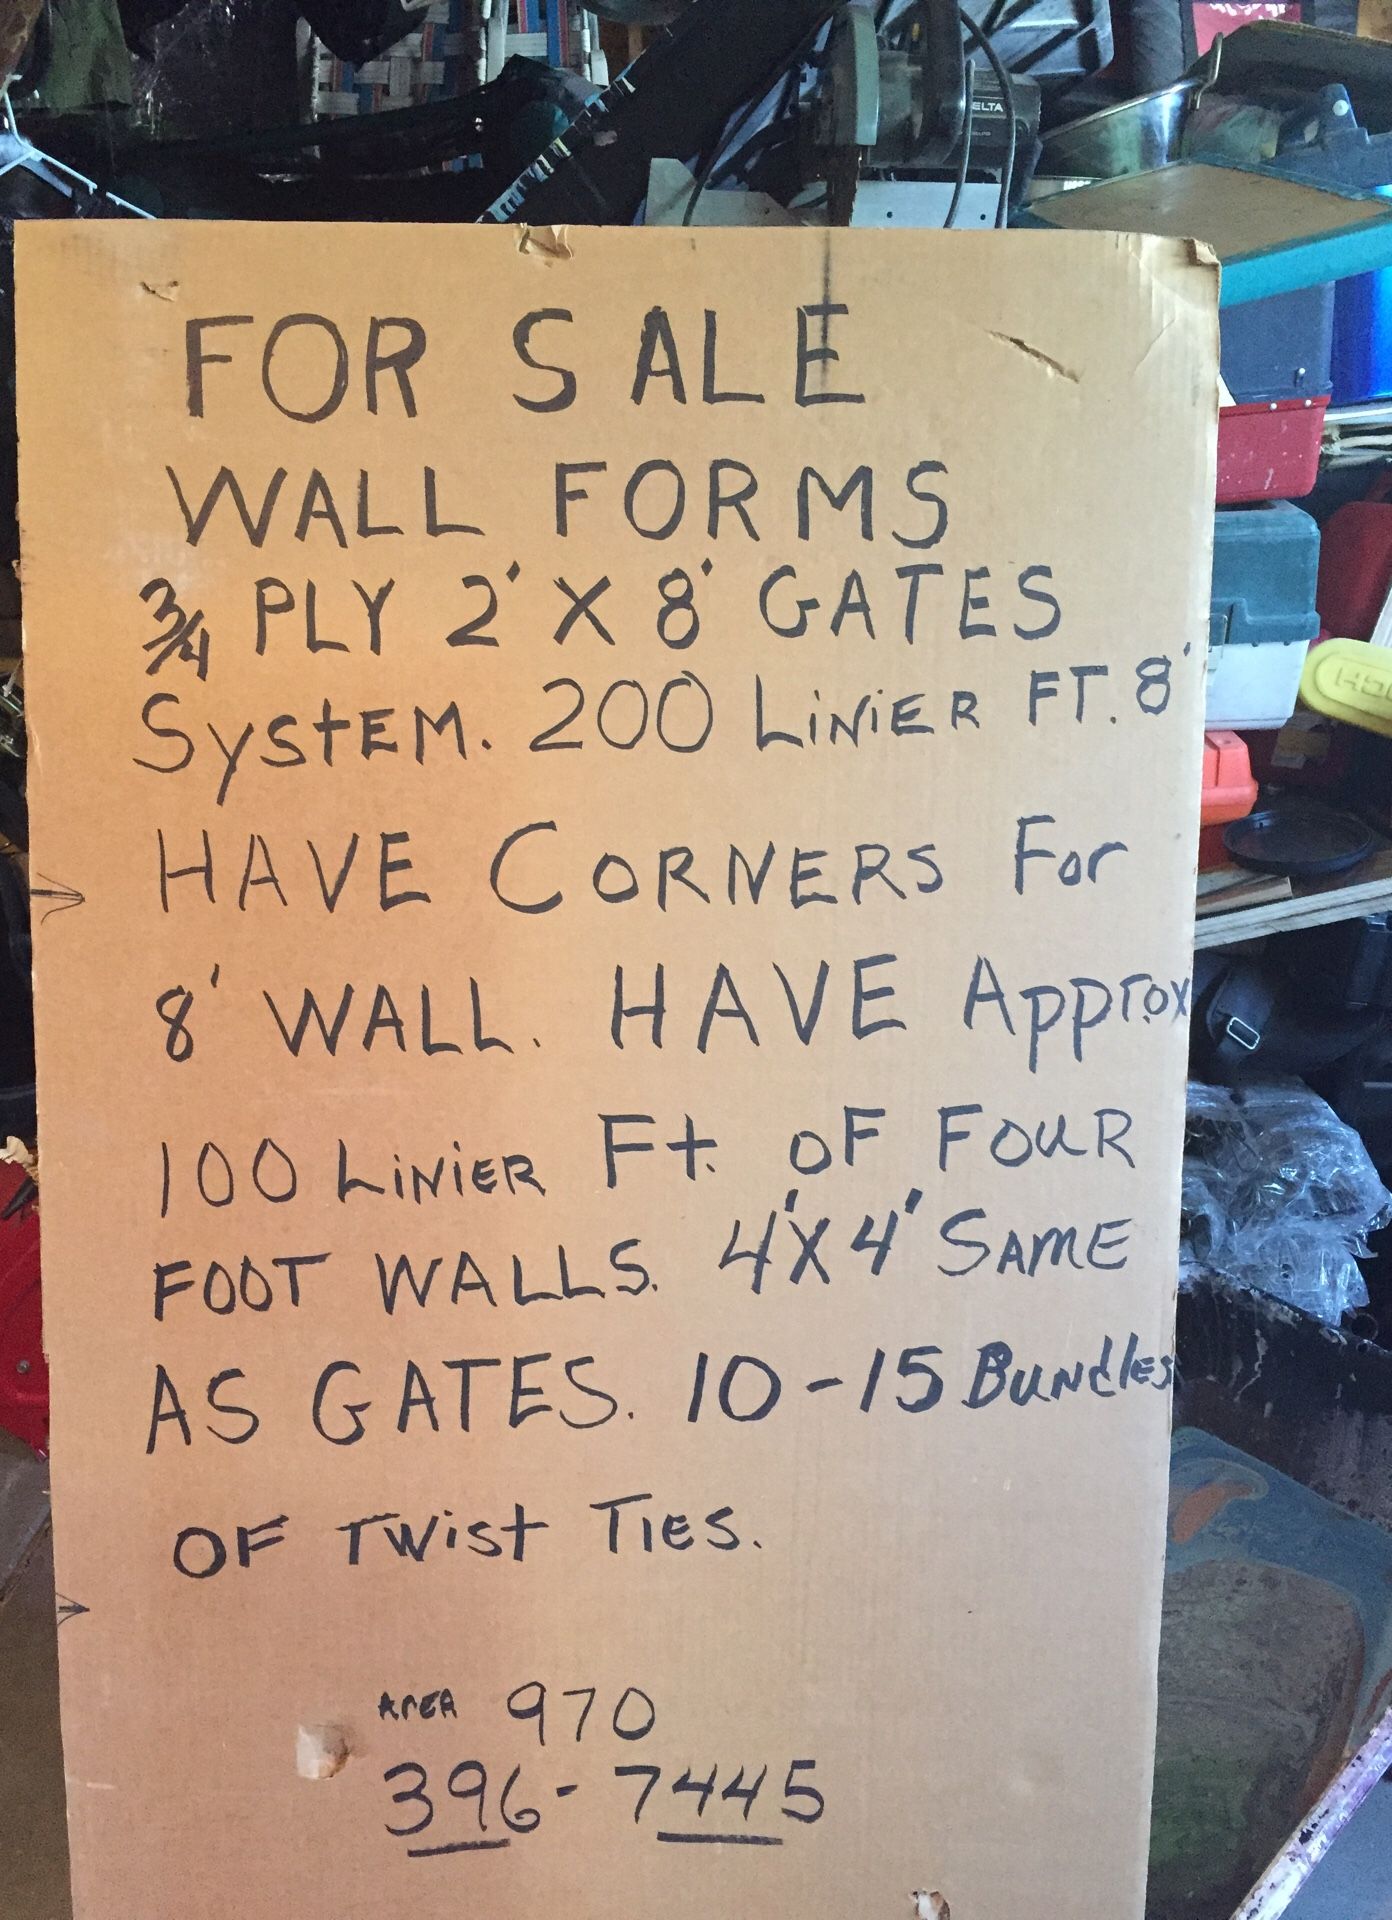 ELTA
FOR SALE
WALL FORMS
3/4 PLY 2' X 8' GATES
SYSTEM. 200 LINIER FT. 8'
HAVE CORNERS FOR
8' WALL. HAVE Approx
100 LINIER Ft. OF FOUR
FOOT WALLS. 4'X4' SAME
AS GATES. 10-15 Bundles
OF TWist TIES.
AREA 970
396-7445